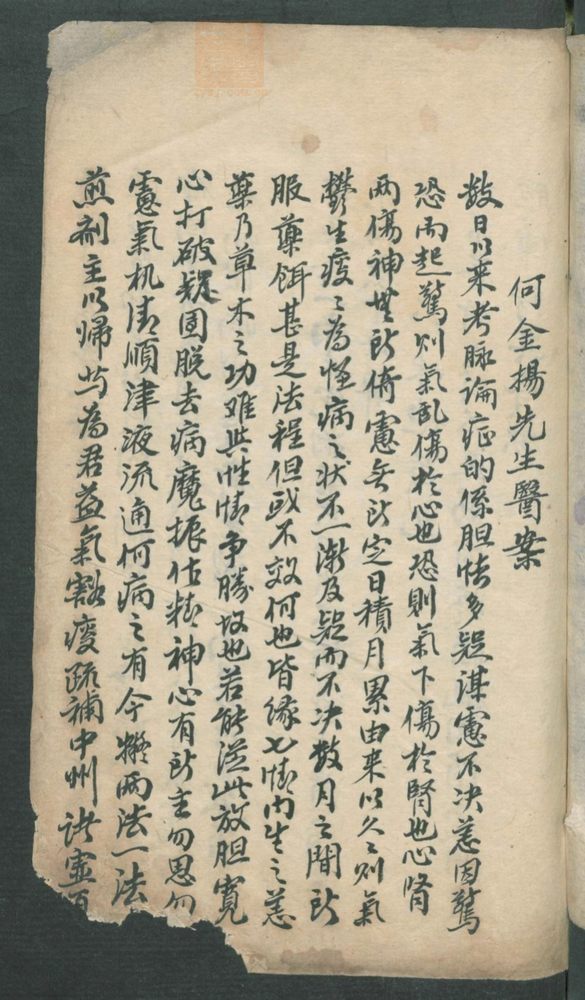 何金揚先生醫案
數日以來考脉論症的係胆怯多疑謀慮不决恙因驚
恐而起驚則氣乱傷於心也恐則氣下傷於腎也心腎
兩傷神無所倚慮無所定日積月累由来以久久則氣
鬱生痰痰為怪病之状不一漸及疑而不决数月之間所
服藥餌甚是法程但或不效何也皆缘七情内生之恙
藥乃草木之功难與性情争勝故也若能從此放胆寬
心打破疑團脱去病魔振作精神心有所主勿思勿
慮氣机清順津液流通何病之有今擬兩法一法
煎剂主以帰芍為君益氣豁痰疏補中州